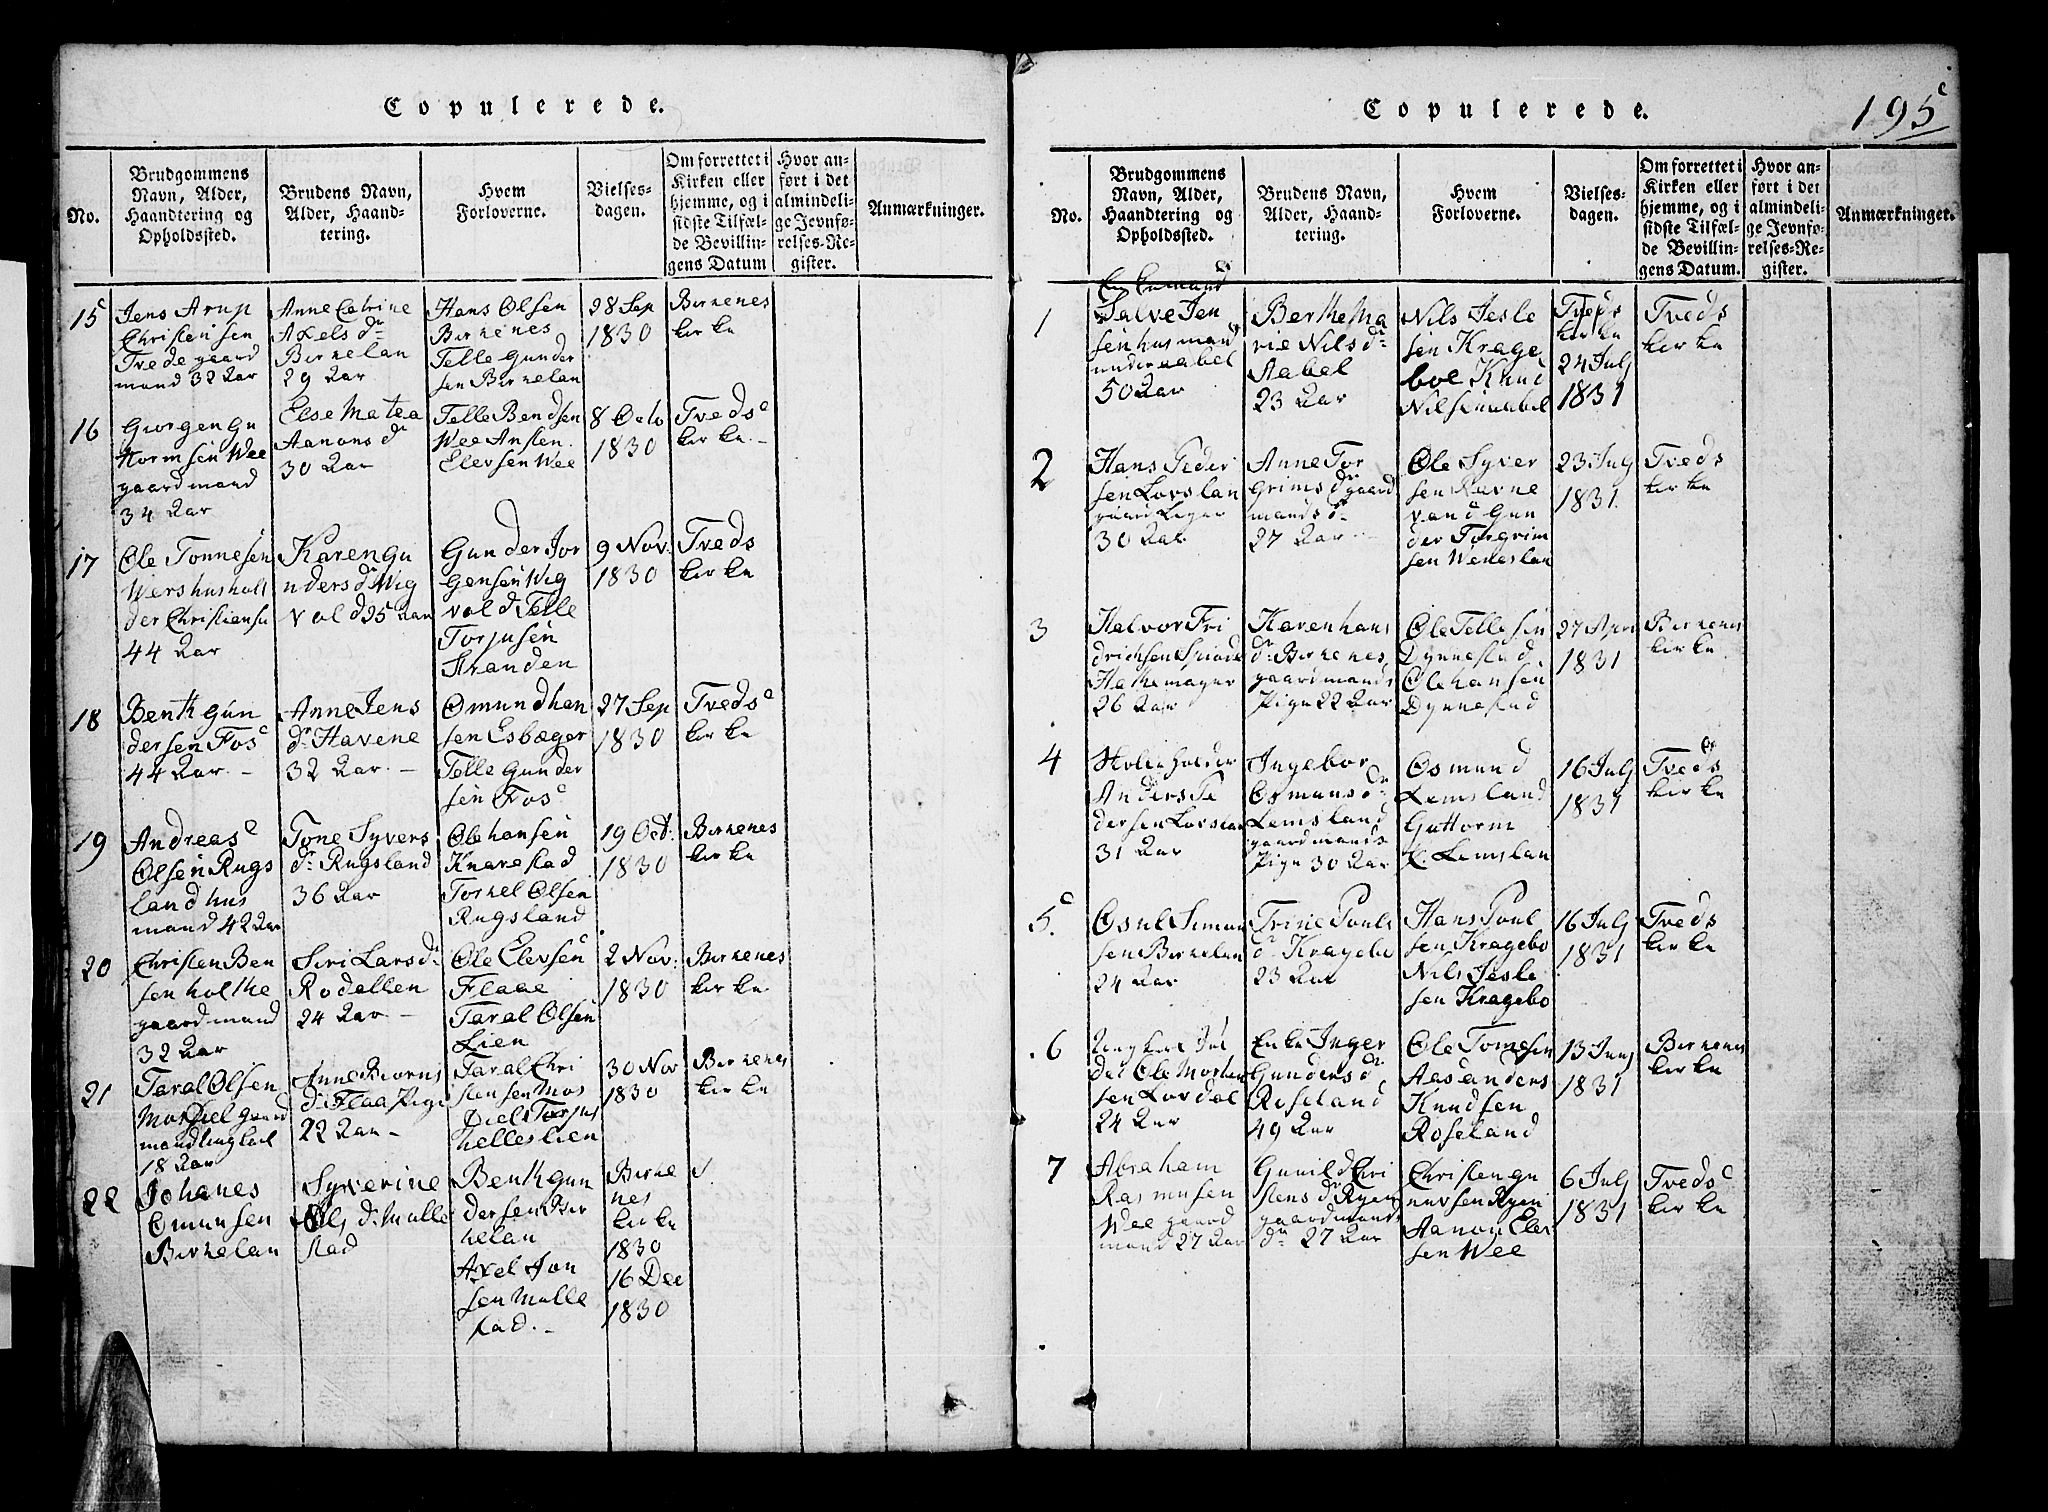 Copulerede.
No.
Brudgommens
Navn, Alder,
Haandtering og
Opholdssted.
Brudens Navn,
Alder, Haand-
tering.
Hvem
Forloverne.
Vielses-
dagen.
Om forrettet i
Kirken eller
hjemme, og i
sidste Tilfæl-
de Bevillin-
gens Datum
Hvor an-
ført i det
almindeli-
ge Jevnfø-
relses-Re-
gister.
Anmærkninger.
15
Jens Arup
Christensen
Tvede gaard
mand 32 Aar
Anne Catrine
Axels dr
Birkelan
29 Aar
Hans Olsen
Birkenes
Telle Gunder
sen Birkelan
28 Sep
1830
Birkenes
kirke
16
Giorgen Gu
ttormsen Wee
gaardmand
34 Aar
Else Matea
Aanons dr
30 Aar
Telle Bendsen
Wee Ansten
Elevsen Wee
8 Octo
1830
Tveds
kirke
17
Ole Tonnesen
Wershusholl
der Christiensn
44 Aar
Karen Gu
nders dr Wig
vold 25 Aar
Gunder Jor
gensen Wig
vold Telle
Torjusen
Stranden
9 Nov.
1830
Tveds
kirke
18
Benth Gun
dersen Fos
44 Aar
Anne Jens
dr Havene
32 Aar
Omund han
sen Esbæger
Telle Gunder
sen Fos
27 Sep
1830
Tveds
kirke
19
Andreas
Olsen Rugs
land hus
mand 42 Aar
Tone Syvers
dr Rugsland
36 Aar
Ole hansen
Knarestad
Torkel Olsen
Rugsland
19 Oct.
1830
Birkenes
kirke
20
Christen Ben
sen holthe
gaardmand
32 Aar
Siri Lars dr
Rodellen
24 Aar
Ole Elevsen
Flaae
Taral Olsen
Lien
2 Nov:
1830
Birkenes
kirke
21
Taral Olsen
gaard
mand
18 Aar
Anne Biorns
dr Flaa Pige
22 Aar
Taral Chri
stensen Mos
30 Nov
1830
Birkenes
kirke
22
Johanes
Omunsen
Birkelan
Syverine
dr Malle
stad
Benth Gun
dersen Bir
kelan
Axel Jon
sen Malle
stad.
Birke
nes
kirke
1830
16 Dec
1830
Copulerede.
195
No.
Brudgommens
Navn, Alder,
Haandtering og
Opholdssted.
Brudens Navn,
Alder, Haand-
tering.
Hvem
Forloverne.
Vielses-
dagen.
Om forrettet i
Kirken eller
hjemme, og i
sidste Tilfæl-
de Bevillin-
gens Datum.
Hvor an-
ført i det
almindeli-
ge Jevnfø-
relses-Re-
gister.
Anmærkninger.
1
Enkemand
Salve Jen
sen husmand
under aabel
50 Aar
Berthe Ma
rie Nils dr
Aabel
23 Aar
Nils Jesle
sen Krage
boe Knud
Nilsen aabel
Tveds
kirke
24 July
1831
Tveds
kirke
2
Hans Peder
sen Lovslan
30 Aar
Anne Tor
grims dr gaard
mands dr
27 Aar
Ole Syver
sen Ravne
vand Gun
der Torgrim
sen
23 July
1831.
Tveds
kirke
3
Halvor Fri
drichsen
Hattemager
26 Aar
Karen hans
dr Birkenes
gaardmands
Pige 22 Aar
Ole Tellesen
Dynnestad
Ole hansen
Dynnestad
27 Apri
1831
Birkenes
kirke
4
Skoleholder
Anders Pe
dersen Lovslan
31 Aar
Ingebor
Osmuns dr
Lemsland
gaardmands
Pige 30 Aar
Osmund
Lemsland
Guttorm
K. Lemslan
16 July
1831
Tveds
kirke
5.
Osul Simon
sen Birkelan
24 Aar
Trine Pouls
dr Kragebo
23 Aar
Hans Poul
sen Kragebo
Nils Jesle
sen Kragebo
16 July
1831
Tveds
kirke
6
Ungkarl Sol
dat Ole Morten
sen Lovdal
24 Aar
Enke Inger
Gunders dr
Roseland
49 Aar
Ole Tomesen
Aas anders
Knudsen
Roseland
13 Juny
1831
Birkenes
kirke
7
Abraham
Rasmusen
Wee gaard
mand 27 Aar
Gunild Chri
stens dr Ryen
gaardmands
dr 27 Aar
Christen Gu
narsen Ryen
Aanon Elev
sen Wee
6 July
1831
Tveds
kirke